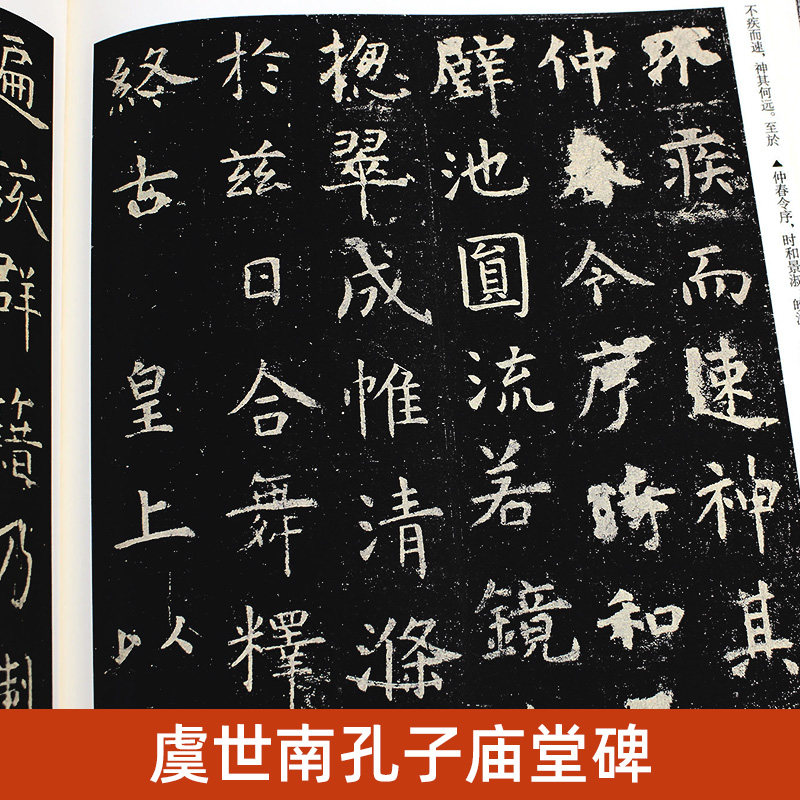 不疾而速，神其何远。至於
▲仲春令序，时和景淑
不疾而速神其
仲春令序時和
璧池圓流若鏡
揔翠成帷清滌
於兹日合舞釋
終古皇上以
遍該群籍乃制
虞世南孔子庙堂碑